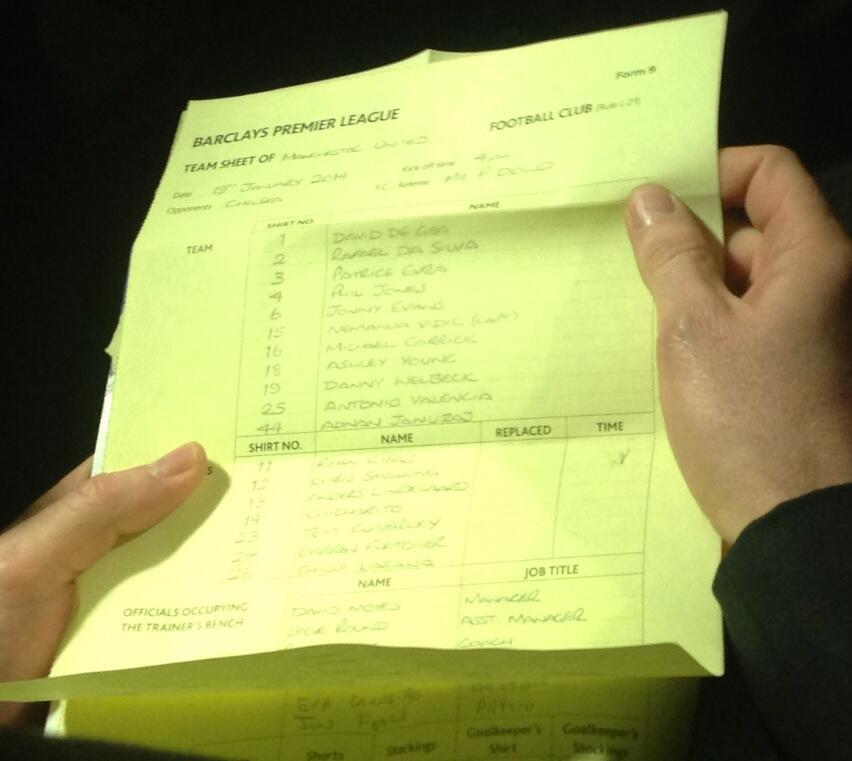 Form 9
BARCLAYS PREMIER LEAGUE
FOOTBALL CLUB (Rule L.21)
TEAM SHEET OF MANCHESTER UNITED
Kick-off time 4pm
Date 19TH JANUARY 2014
Referee MR P DOWD
Opponents CHELSEA F.C.
SHIRT NO. NAME
TEAM
1 DAVID DE GEA
2 RAFAEL DA SILVA
3 PATRICE EVRA
4 PHIL JONES
6 JONNY EVANS
15 NEMANJA VIDIC (CAPT)
16 MICHAEL CARRICK
18 ASHLEY YOUNG
19 DANNY WELBECK
25 ANTONIO VALENCIA
44 ADNAN JANUZAJ
SHIRT NO. NAME REPLACED TIME
11 RYAN GIGGS
12 CHRIS SMALLING
13 ANDERS LINDEGAARD
14 CHICHARITO
23 TOM CLEVERLEY
24 DARREN FLETCHER
26 SHINJI KAGAWA
NAME JOB TITLE
OFFICIALS OCCUPYING
THE TRAINER'S BENCH
DAVID MOYES MANAGER
STEVE ROUND ASST. MANAGER
COACH
EVA CARNEIRO DOCTOR
JON FEARN PHYSIO
Shorts Stockings Goalkeeper's Shirt Goalkeeper's Stockings